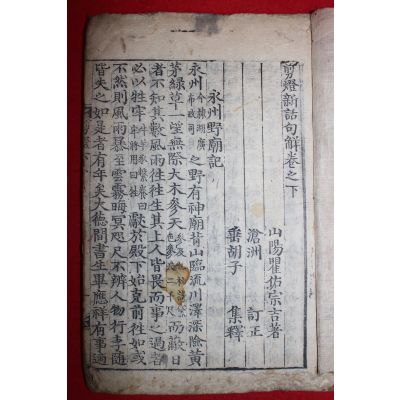 剪燈新話句解卷之下
山陽瞿佑宗吉著
滄洲 訂正
垂胡子 集釋
永州野廟記
永州今隸湖廣布政司之野有神廟背山臨流川澤深險黃
茅綠草一望無際大木參天而蔽日
者不知其數風雨往往生其上人皆畏而事之過者
必以牲牢獻於殿下始克前往如或
不然則風雨暴至雲霧晦冥咫尺不辨人物行李隨
皆失之如是者有年矣大德間書生畢應祥有事適